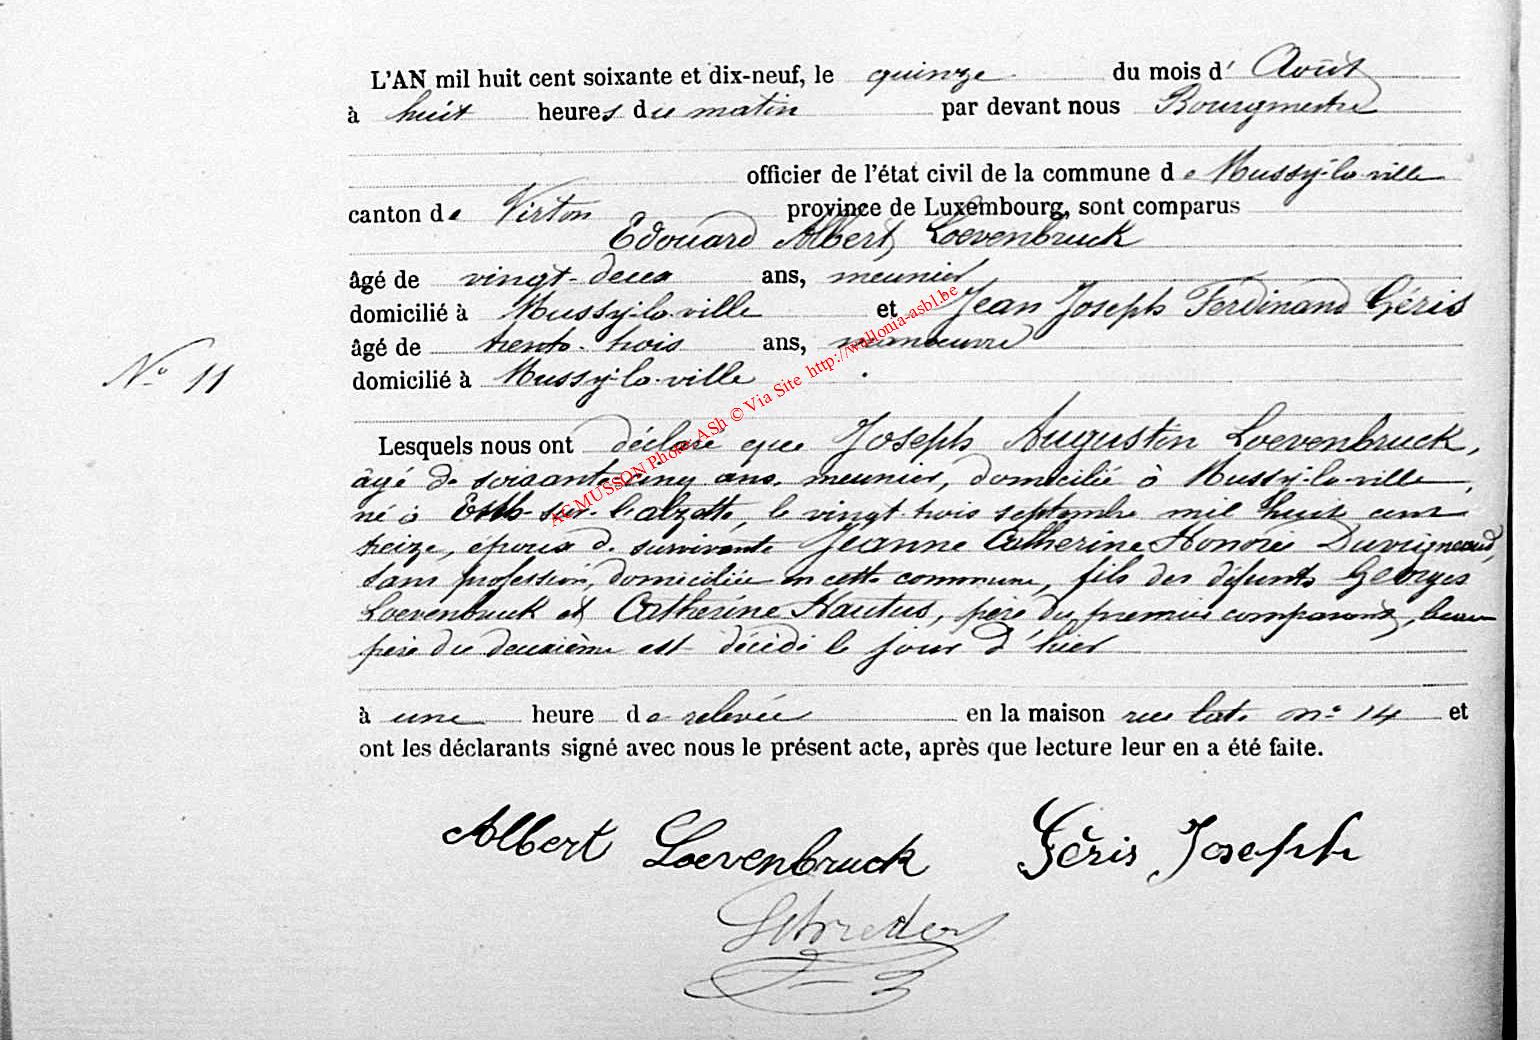 L'AN mil huit cent soixante et dix-neuf, le quinze du mois d' Août
à huit heures du matin par devant nous Bourgmestre
officier de l'état civil de la commune de Mussy-la-ville
canton de Virton province de Luxembourg, sont comparus
Edouard Albert Loevenbruck
âgé de vingt-deux ans, meunier
domicilié à Mussy-la-ville et Jean Joseph Ferdinand Géris
âgé de trente-trois ans, manoeuvre
N° 11
domicilié à Mussy-la-ville
ACMUSSON Photo: ASh © Via Site http://wallonia-asbl.be
Lesquels nous ont déclaré que Joseph Augustin Loevenbruck,
âgé de soixante cinq ans, meunier, domicilié à Mussy-la-ville,
né à Esch-sur-l'alzette, le vingt-trois septembre mil huit cent
treize, époux de survivante Jeanne Catherine Honorée Duvigneaud,
sans profession, domiciliée en cette commune, fils des défunts Georges
Loevenbruck et Catherine Hautus, père du premier comparant, beau
père du deuxième est décédé le jour d'hier
à une heure de relevée en la maison rue n° 14 et
ont les déclarants signé avec nous le présent acte, après que lecture leur en a été faite.
Albert Loevenbruck Géris Joseph